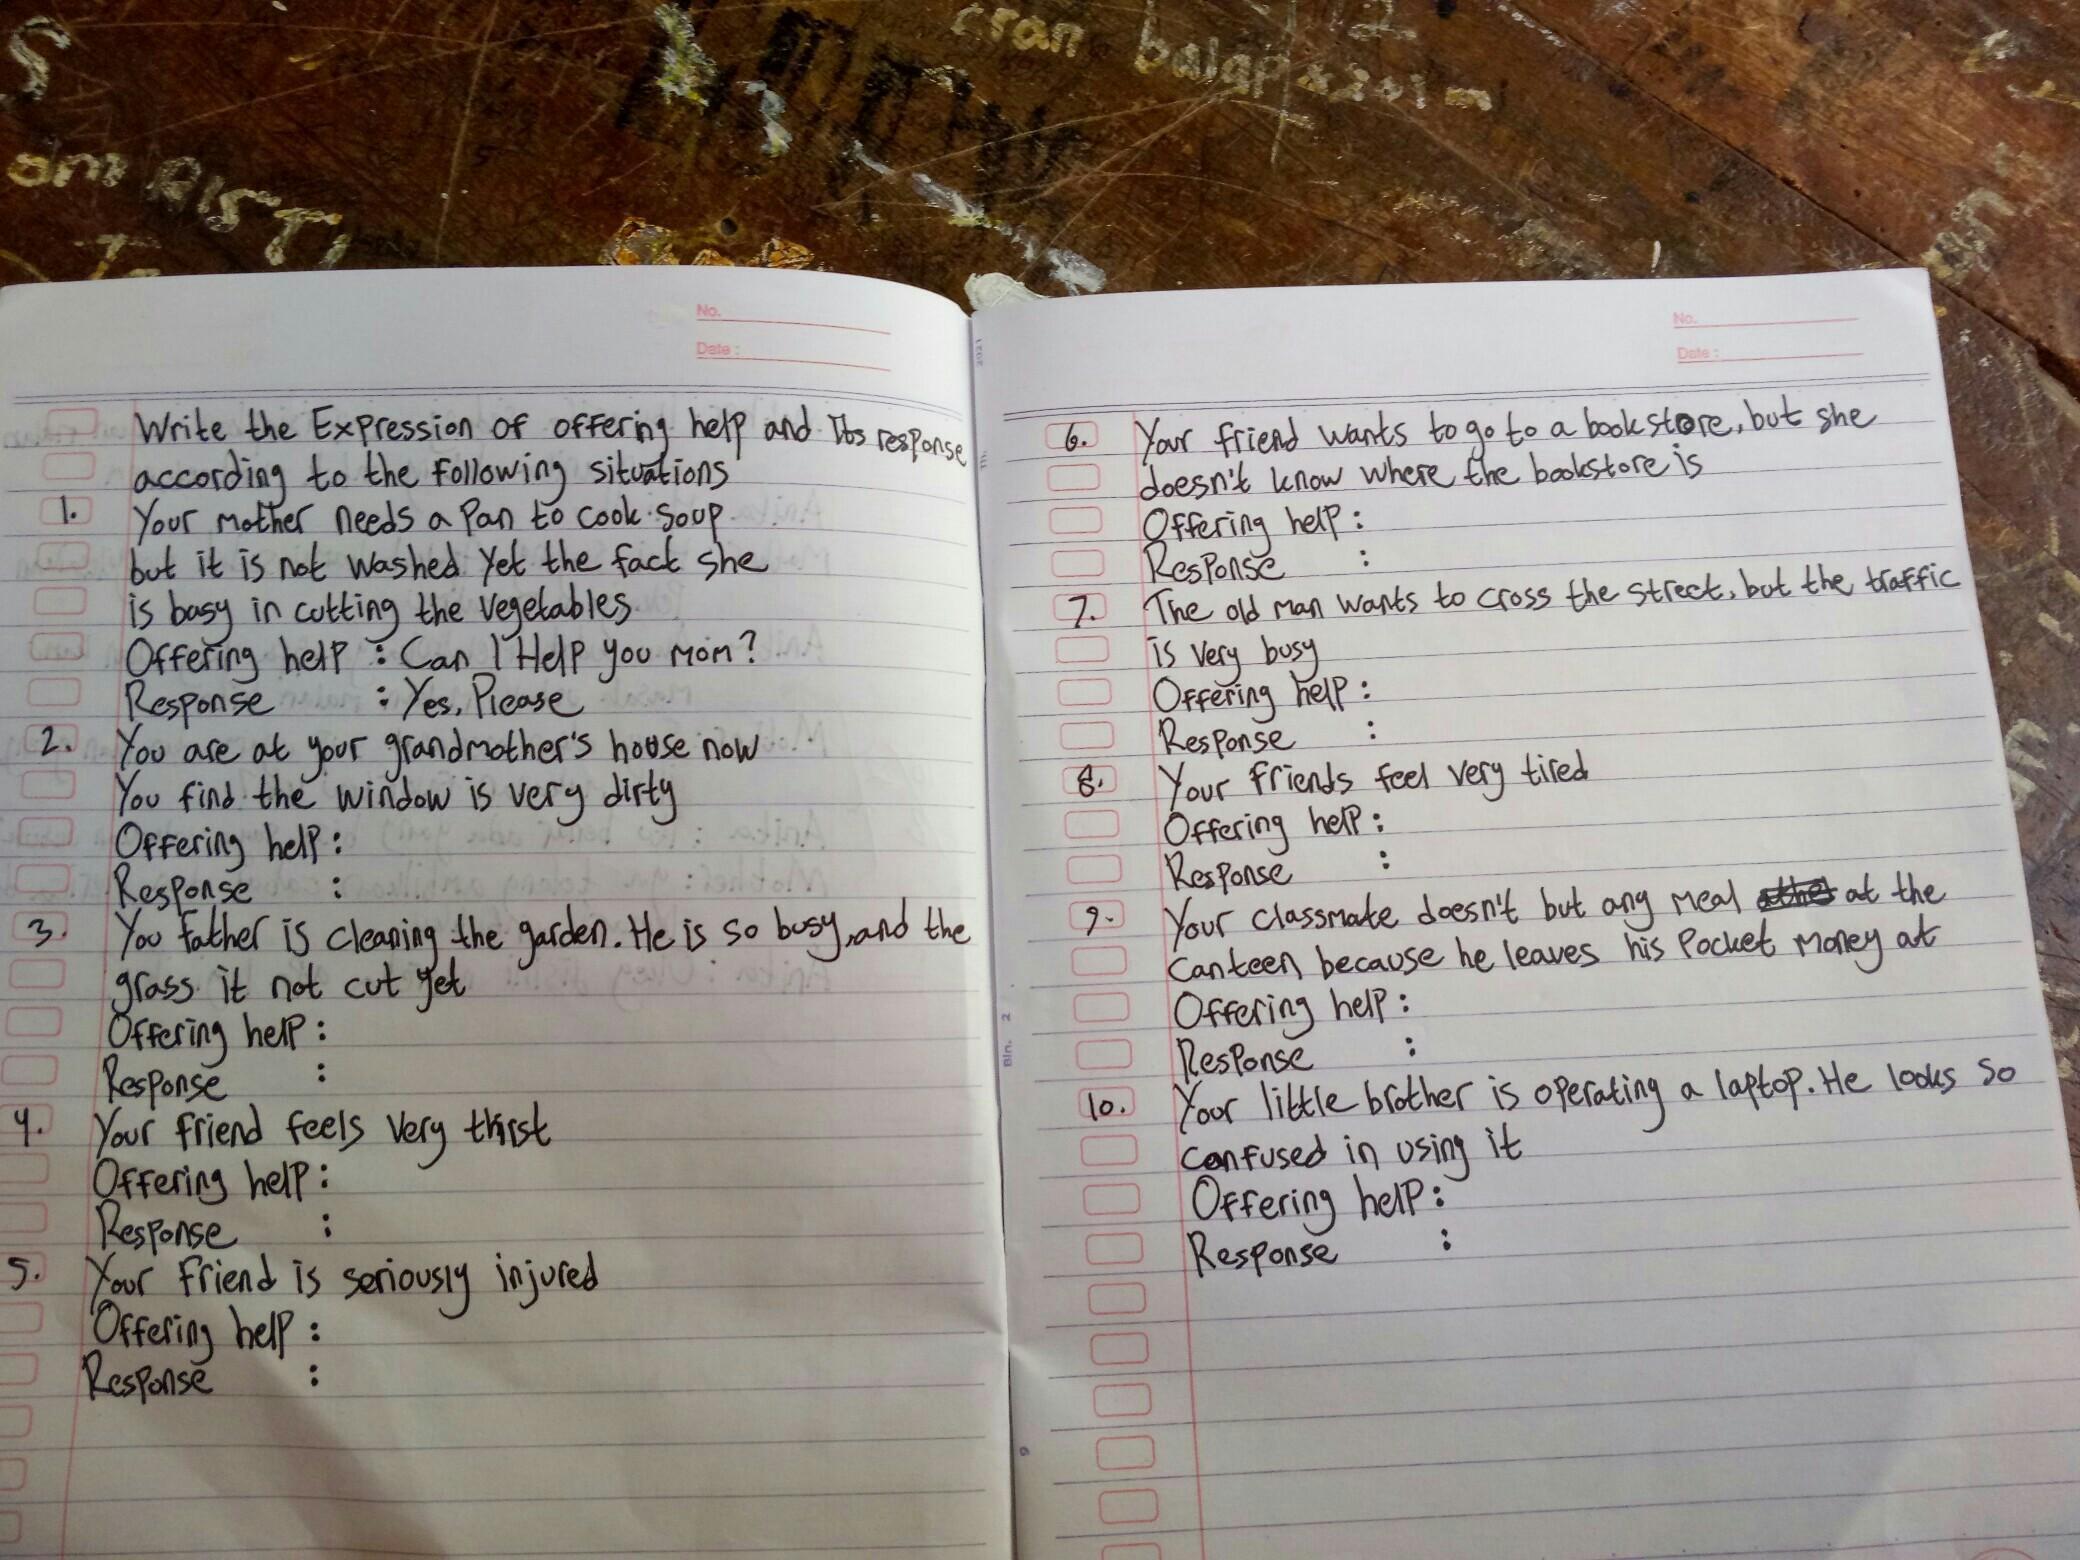 cran balap
No.
Date :
Write the Expression of offering help and Its response
according to the following situations
1. Your mother needs a Pan to cook soup
but it is not washed yet the fact she
is basy in cutting the vegetables
Offering help : Can I Help you Mom?
Response : Yes, Please
2. You are at your grandmother's house now
You find the window is very dirty
Offering help :
Response :
3. You father is cleaning the garden. He is so busy, and the
grass it not cut yet
Offering help :
Response :
4. Your friend feels very thirst
Offering help :
Response :
5. Your friend is seriously injured
Offering help :
Response :
2021
Bln. 2
No.
Date :
6. Your friend wants to go to a bookstore, but she
doesn't know where the bookstore is
Offering help :
Response :
7. The old man wants to cross the street, but the traffic
is very busy
Offering help :
Response :
8. Your friends feel very tired
Offering help :
Response :
9. Your classmate doesn't but any meal at the
canteen because he leaves his Pocket money at
Offering help :
Response :
10. Your little brother is operating a laptop. He looks so
confused in using it
Offering help :
Response :